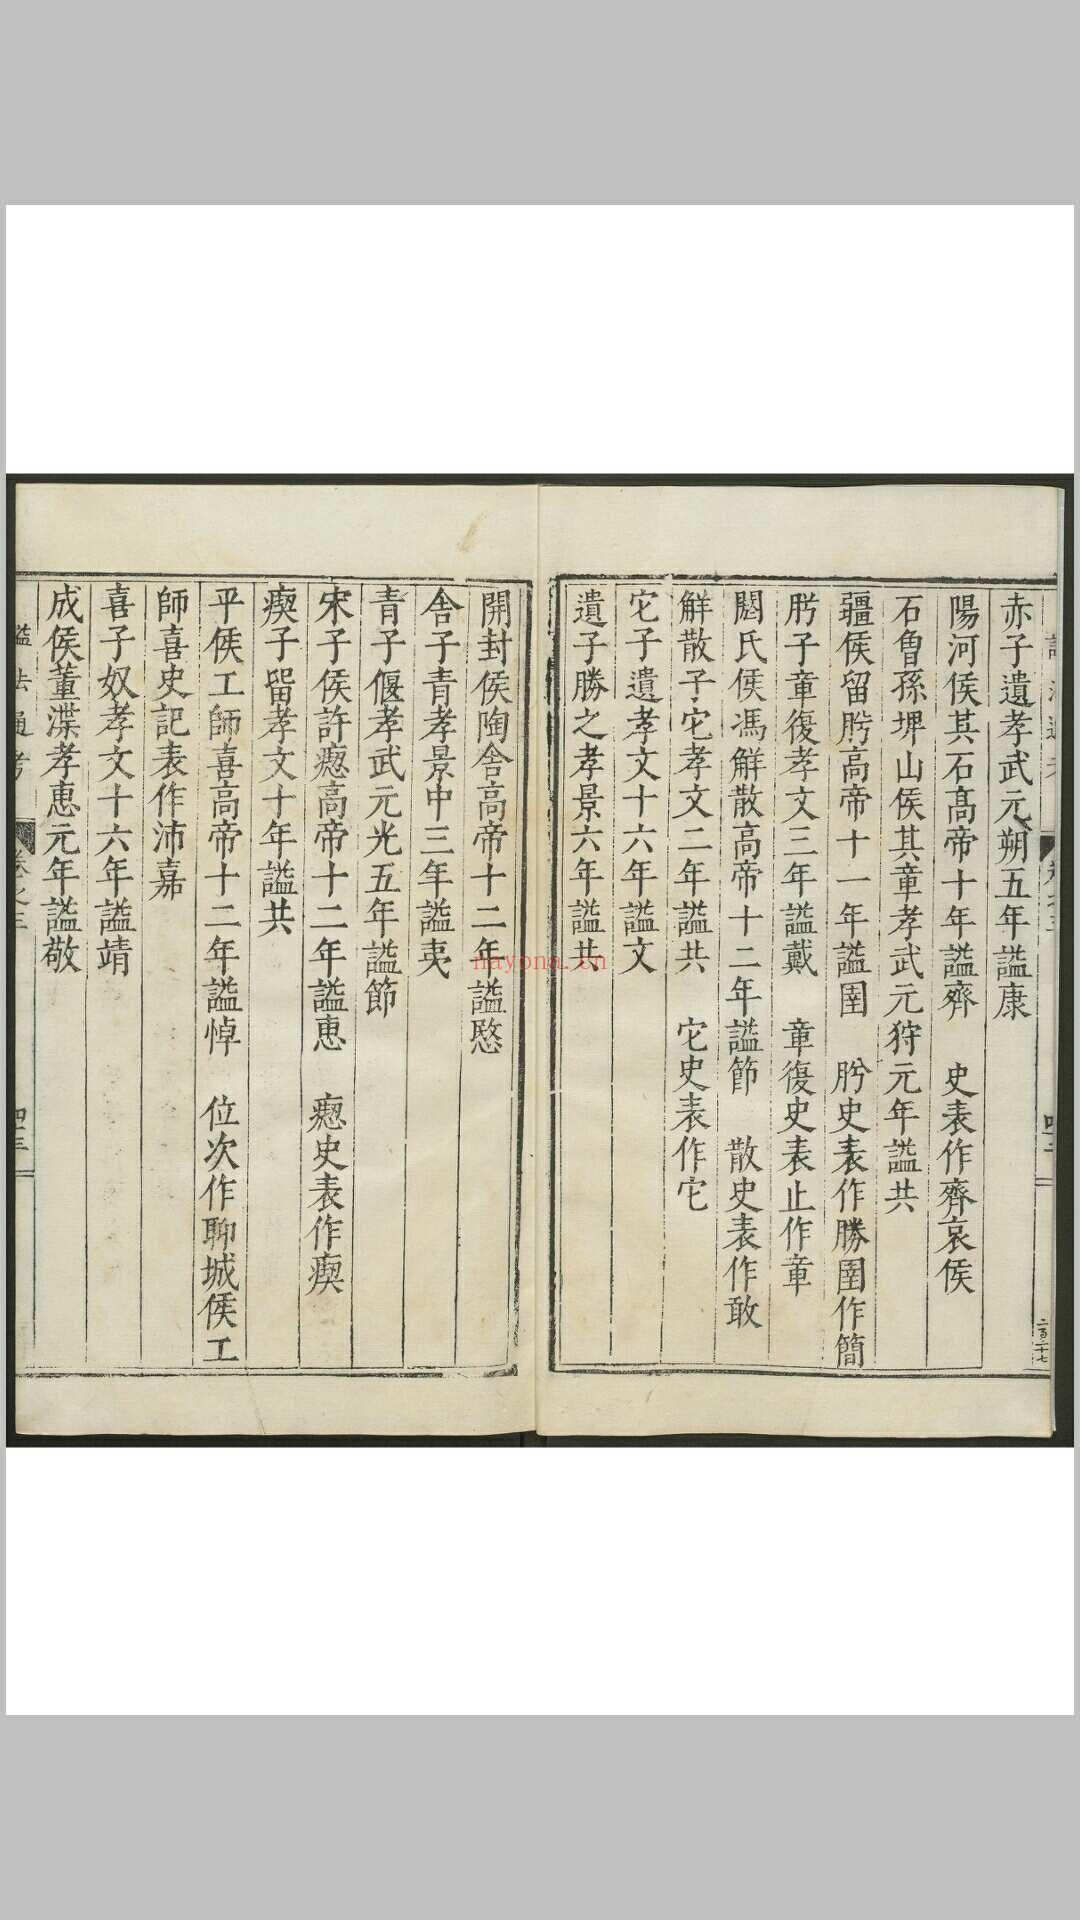 赤子遺孝武元朔五年謚康
陽河侯其石髙帝十年謚齊　史表作齊哀侯
石魯孫埤山侯其章孝武元狩元年謚共
疆侯留肹高帝十一年謚圉　肹史表作勝圉作簡
肹子章復孝文三年謚戴　章復史表止作章
閼氏侯馮解散高帝十二年謚節　散史表作敢
解散子它孝文二年謚共　它史表作它
它子遺孝文十六年謚文
遺子勝之孝景六年謚共
開封侯陶舍高帝十二年謚愍
舍子青孝景中三年謚夷
青子偃孝武元光五年謚節
宋子侯許瘛高帝十二年謚惠　瘛史表作瘈
瘈子留孝文十年謚共
平侯工師喜高帝十二年謚悼　位次作聊城侯工
師喜史記表作沛嘉
喜子奴孝文十六年謚靖
成侯董渫孝惠元年謚敬
謚法通考
卷之三
nayona.cn